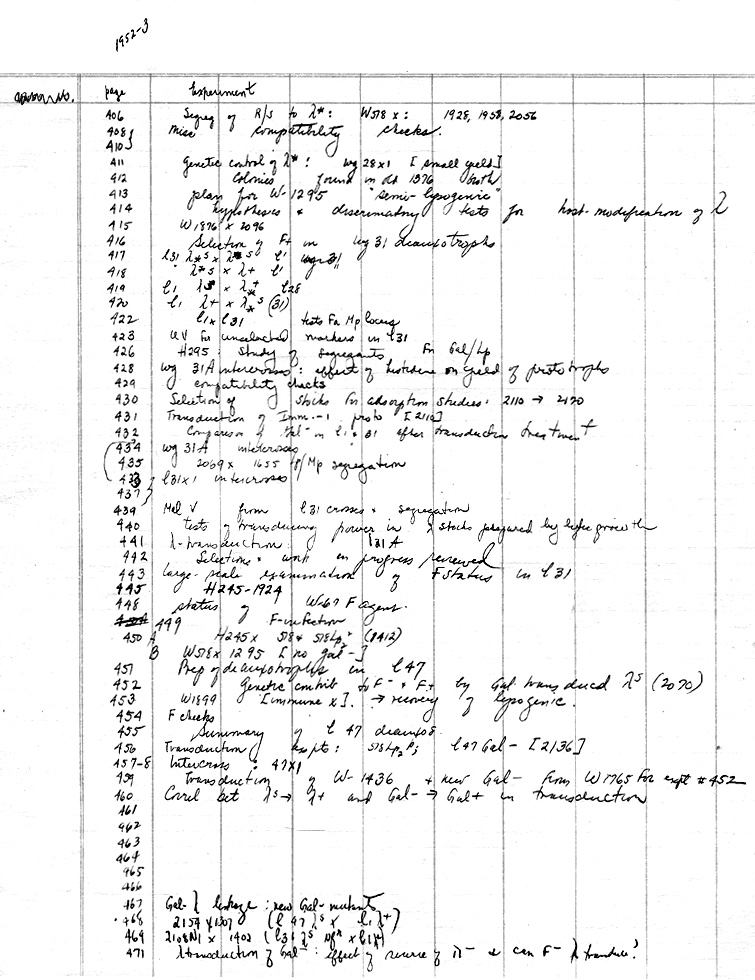 1952-3
page Experiment
406 Segreg of R/S to λ*: W518 x: 1928, 1958, 2056
408} Misc compatibility checks.
410}
411 Genetic control of λ*: wg 28x1 [small yield]
412 Colonies found in old 1376 broth
413 plan for W-1295 "semi-lysogenic"
414 hypotheses & discriminatory tests for host-modification of λ
415 W1876 x 2096
416 Selection of F+ in wg 31 diauxotrophs
417 l31 λ*s x λ*s l1
418 λ*s x λ+ l1
419 l1 x λ* l28
420 l1 λ+ x λ*s (31)
422 l1 x l31 tests for Mp locus
423 UV for unselected markers in l31
426 H295: Study of segregants for Gal/Lp
428 wg 31A intercrosses: effect of histidine on yield of prototrophs
429 compatibility checks
430 Selection of stocks for adsorption studies: 2110 → 2170
431 Transduction of Imm.-1 proto [2110]
432 Comparison of Gal- in l1 & 31 after transduction treatment
434 wg 31A intercrosses
435 2069 x 1655 /Mp segregation
l31x1 intercrosses
437}
439 Mel V from l31 crosses & segregation
440 tests of transducing power in λ stocks prepared by lytic growth
441 λ-transduction. l31A
442 Selections & work in progress reviewed
443 large-scale examination of F status in l31
445 H245-1924
448 status of W-67 F agent.
449 F-infection
450 A H245 x 518 & 518Lp2r (8412)
B W518 x 1295 [no gal-]
451 Prep of deauxotrophs in l47
452 Genetic contrib to F- & F+ by Gal transduced λs (2070)
453 W1899 [immune x]. → recovery of lysogenic.
454 F checks
455 Summary of l 47 deauxos.
456 Transduction expts: 518Lp2r; l47 Gal- [2136]
457-8 Intercross: 47x1
459 Transduction of W-1436 + new Gal- from W1765 for expt #452
460 Correl bet λs → λ+ and Gal- → Gal+ in transduction
461
462
463
464
465
466
467 Gal-λ linkage: new Gal- mutants
468 2154 x 1307 (l 47 λs x l1 λ+)
469 2108N1 x 1402
471 λtransduction of Gal-: effect of reverse of λ- & can F- λ transduce?